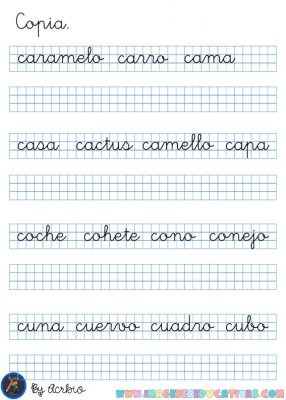 Copia.
caramelo carro cama
casa cactus camello capa
coche cohete cono conejo
cuna cuervo cuadro cubo
By Acrbio
www.imageneseducativas.com